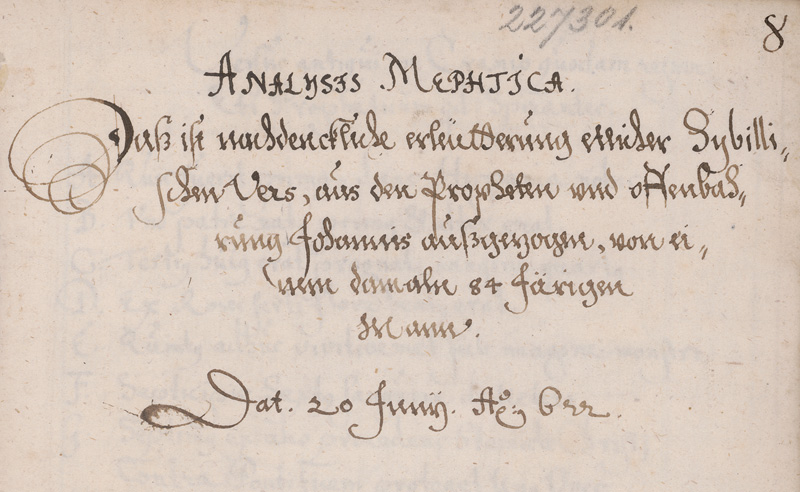 227301.
8
ANALYSIS MEPHTICA.
Daß ist nachdenckliche erleütterung etlicher Sybilli-
schen Vers, aus den Propheten vnd offenbah-
rung Johannis außgezogen, von ei-
nem damaln 84 Järigen
Mann.
Dat. 20 Junÿ. Aō: